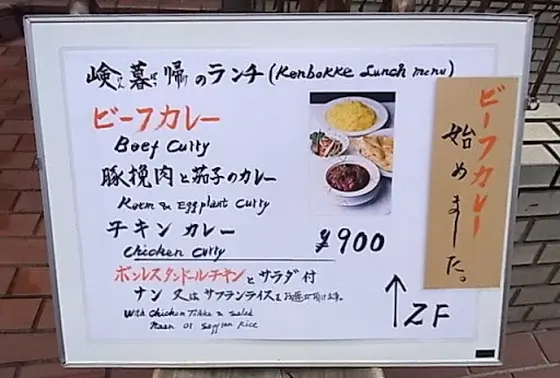 峻暮帰のランチ(Kenbokke Lunch menu)
ビーフカレー
Beef Curry
豚挽肉と茄子のカレー
Keema Eggplant Curry
チキンカレー
Chicken Curry
¥900
ボンレスタンドールチキンとサラダ付
ナン又はサフランライスを
With Chicken Tikka & Salad
Naan or Saffron Rice
↑2F
ビーフカレー
始めました。